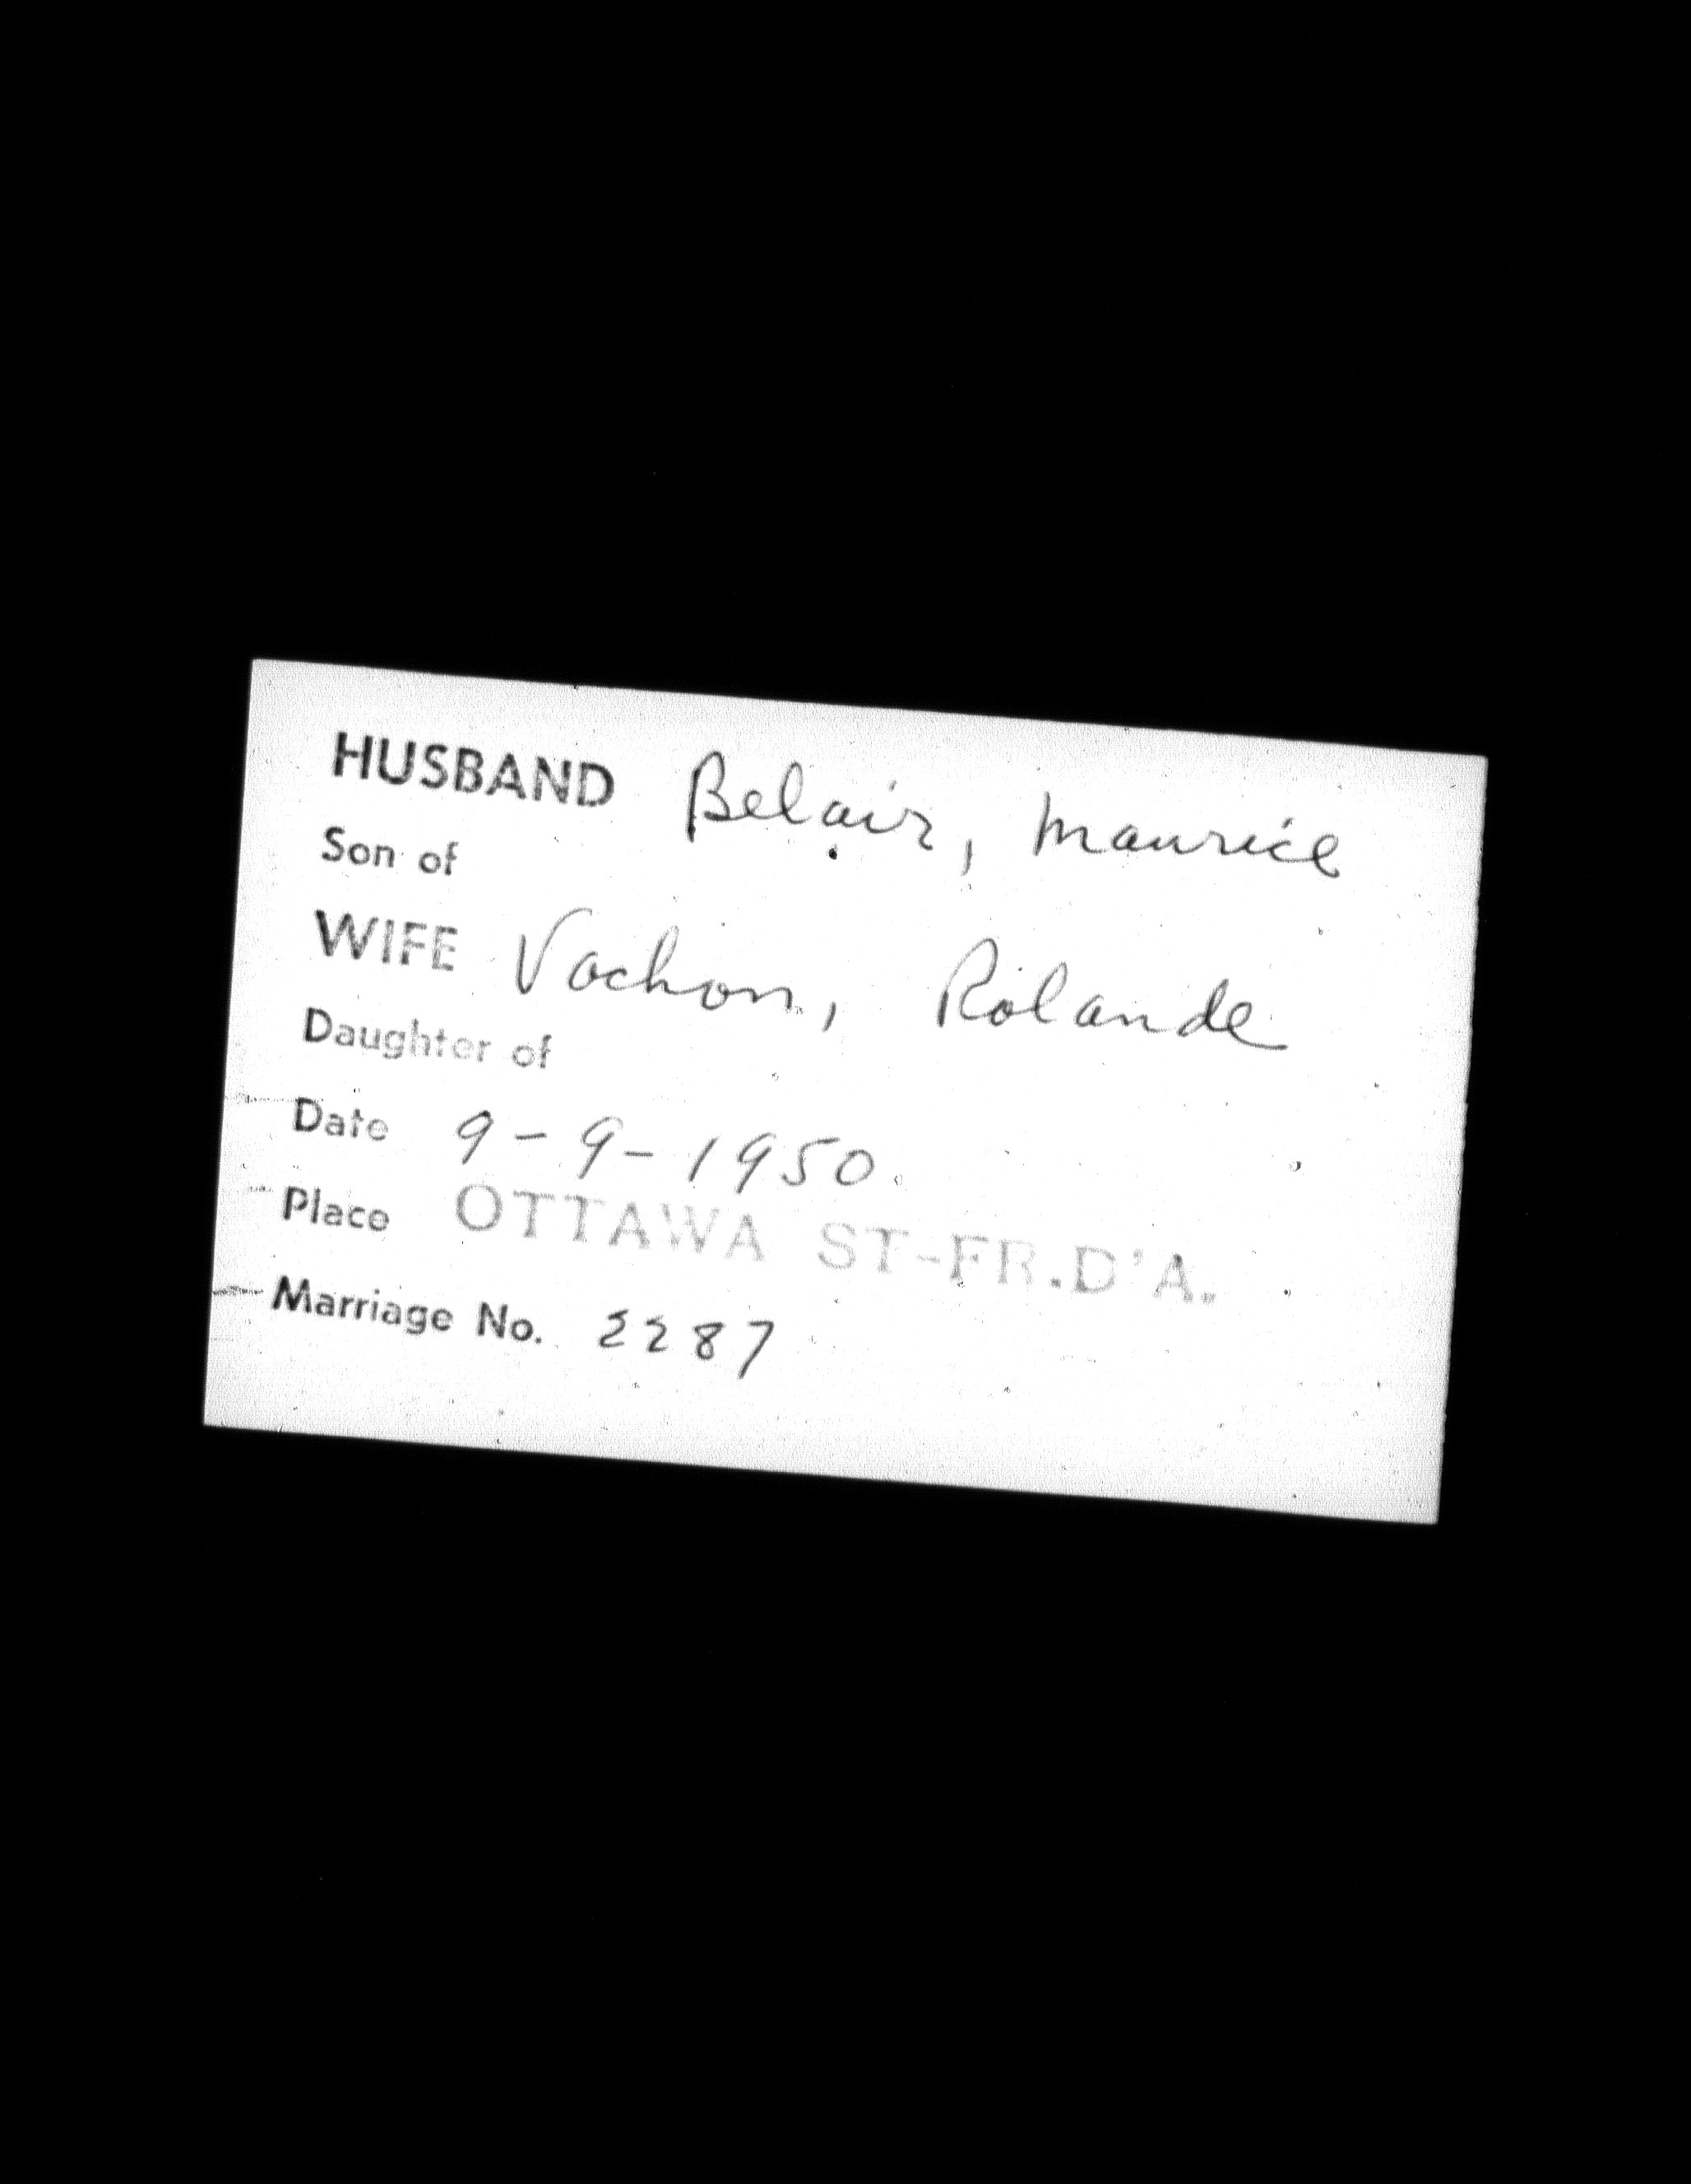 HUSBAND Belair, Maurice
Son of
WIFE Vachon, Rolande
Daughter of
Date 9-9-1950.
Place OTTAWA ST-FR.D'A.
Marriage No. 2287